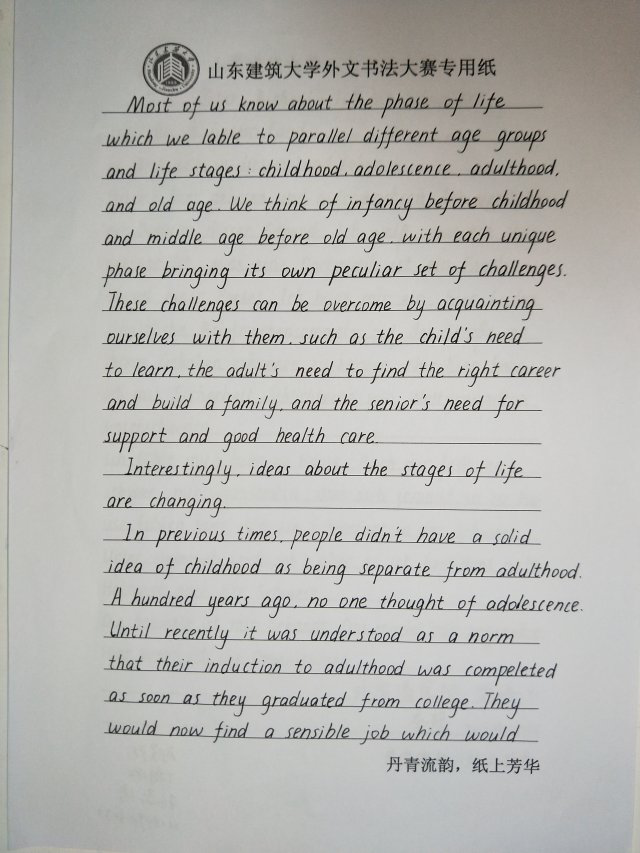 山东建筑大学外文书法大赛专用纸
Most of us know about the phase of life
which we lable to parallel different age groups
and life stages: childhood, adolescence, adulthood,
and old age. We think of infancy before childhood
and middle age before old age, with each unique
phase bringing its own peculiar set of challenges.
These challenges can be overcome by acquainting
ourselves with them, such as the child's need
to learn, the adult's need to find the right career
and build a family, and the senior's need for
support and good health care.
Interestingly, ideas about the stages of life
are changing.
In previous times, people didn't have a solid
idea of childhood as being separate from adulthood.
A hundred years ago, no one thought of adolescence.
Until recently it was understood as a norm
that their induction to adulthood was compeleted
as soon as they graduated from college. They
would now find a sensible job which would
丹青流韵，纸上芳华